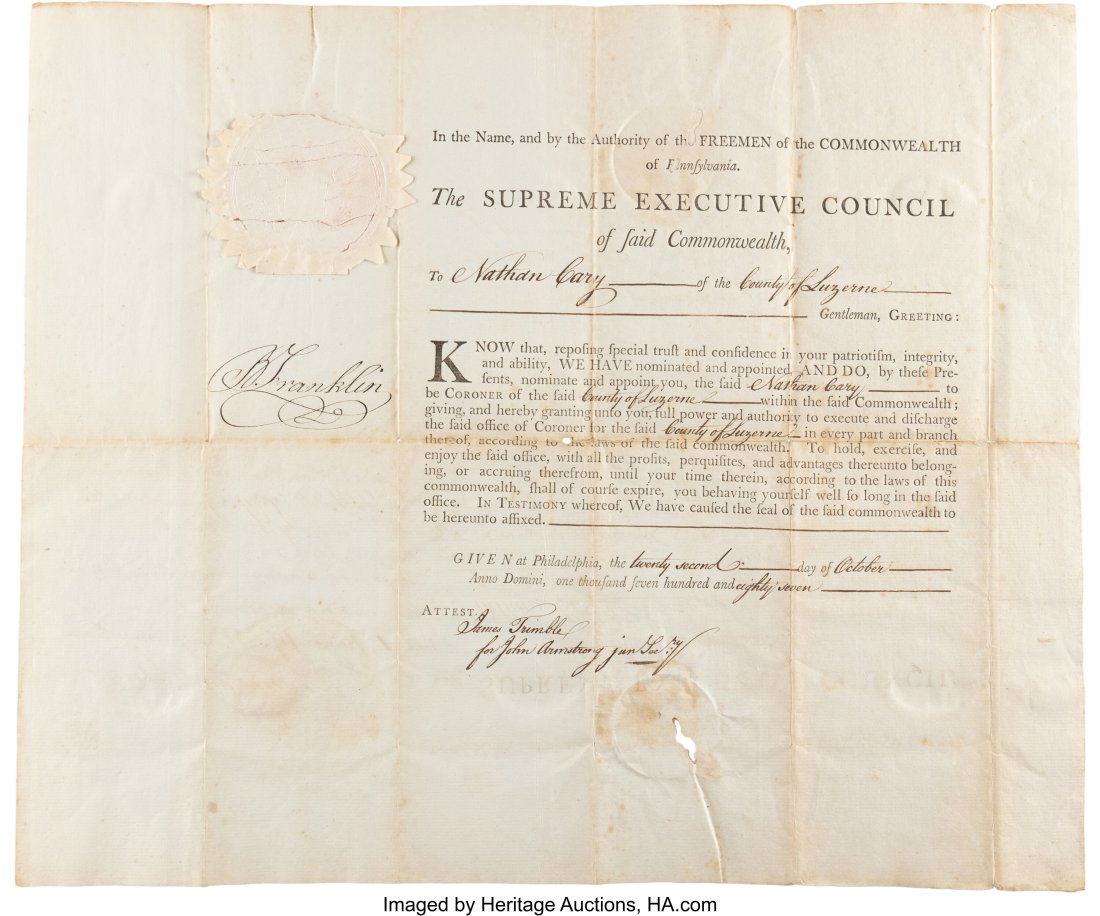 In the Name, and by the Authority of th FREEMEN of the COMMONWEALTH
of Pennſylvania.
The SUPREME EXECUTIVE COUNCIL
of ſaid Commonwealth,
To Nathan Cary of the County of Luzerne
Gentleman, GREETING:
B Franklin
KNOW that, repoſing ſpecial truſt and confidence in your patriotiſm, integrity,
and ability, WE HAVE nominated and appointed, AND DO, by theſe Pre-
ſents, nominate and appoint you, the ſaid Nathan Cary to
be CORONER of the ſaid County of Luzerne within the ſaid Commonwealth;
giving, and hereby granting unto you, full power and authority to execute and diſcharge
the ſaid office of Coroner for the ſaid County of Luzerne in every part and branch
thereof, according to the laws of the ſaid commonwealth. To hold, exerciſe, and
enjoy the ſaid office, with all the profits, perquiſites, and advantages thereunto belong-
ing, or accruing therefrom, until your time therein, according to the laws of this
commonwealth, ſhall of courſe expire, you behaving yourſelf well ſo long in the ſaid
office. IN TESTIMONY whereof, We have cauſed the ſeal of the ſaid commonwealth to
be hereunto affixed.
GIVEN at Philadelphia, the twenty second day of October
Anno Domini, one thouſand ſeven hundred and eighty seven
ATTEST.
James Trimble
for John Armstrong jun Sec.ry
Imaged by Heritage Auctions, HA.com